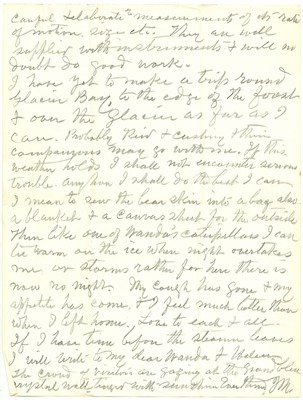 careful & elaborate measurements of its rate
of motion size etc. They are well
supplied with instruments & will no
doubt do good work.
I have yet to make a trip round
Glacier Bay, to the edge of the forest
& over the Glacier as far as I
can. Probably Reid & Cushing & their
companions may go with me. If this
weather holds I shall not encounter serious
trouble. Anyhow I shall do the best I can
I mean to sew the bear skin into a bag also
a blanket & a canvas sheet for the outside
Then like one of Wanda's caterpillars I can
lie warm on the ice when night overtakes
me or storms rather for here there is
now no night. My cough has gone & my
appetite has come, & I feel much better than
when I left home. Love to each & all.
If I have time before the steamer leaves
I will write to my dear Wanda & Helen.
The crowd of visitors are gazing at the grand blue
crystal wall tinged with sunshine Ever thine J M